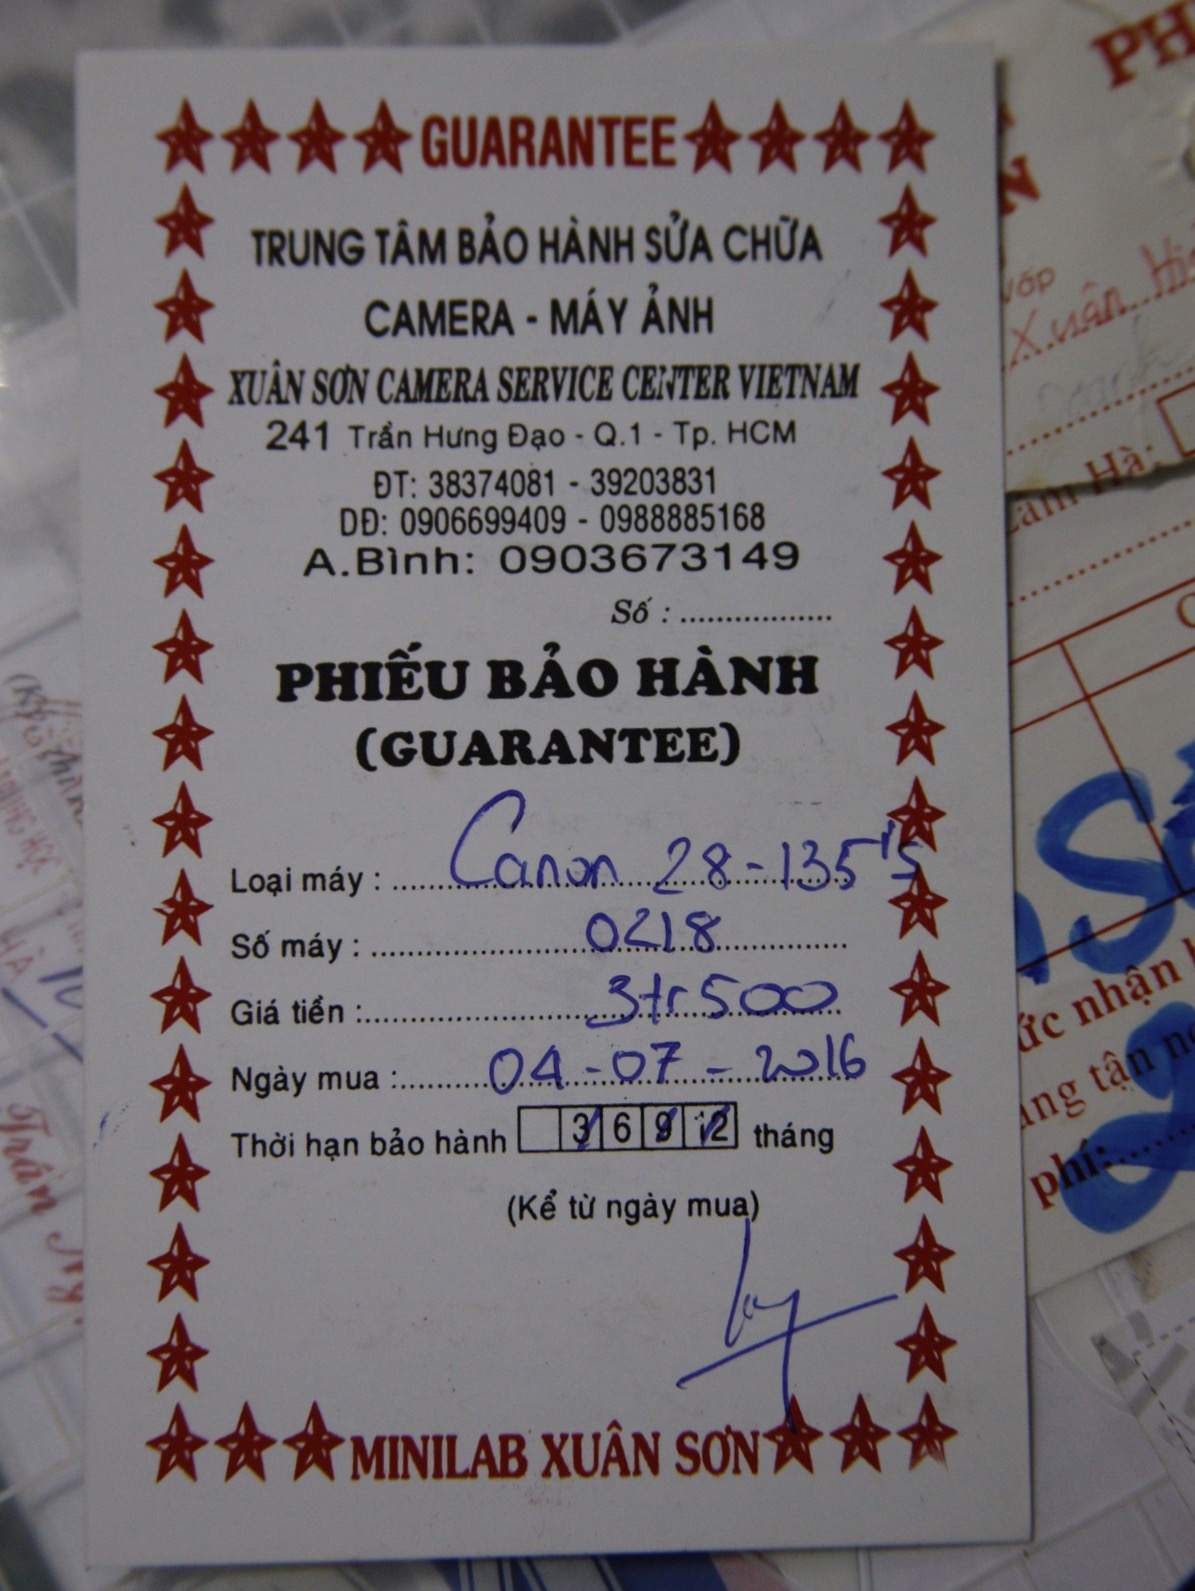 GUARANTEE
TRUNG TÂM BẢO HÀNH SỬA CHỮA
CAMERA - MÁY ẢNH
XUÂN SƠN CAMERA SERVICE CENTER VIETNAM
241 Trần Hưng Đạo - Q.1 - Tp. HCM
ĐT: 38374081 - 39203831
DĐ: 0906699409 - 0988885168
A.Bình: 0903673149
Số : .................
PHIẾU BẢO HÀNH
(GUARANTEE)
Loại máy : Canon 28-135 IS
Số máy : 0218
Giá tiền : 3tr500
Ngày mua : 04-07-2016
Thời hạn bảo hành 3 6 9 12 tháng
(Kể từ ngày mua)
MINILAB XUÂN SƠN
PH
N
Vốp
Xuân
Hà:
ức nhận
tận
phí:
Trần